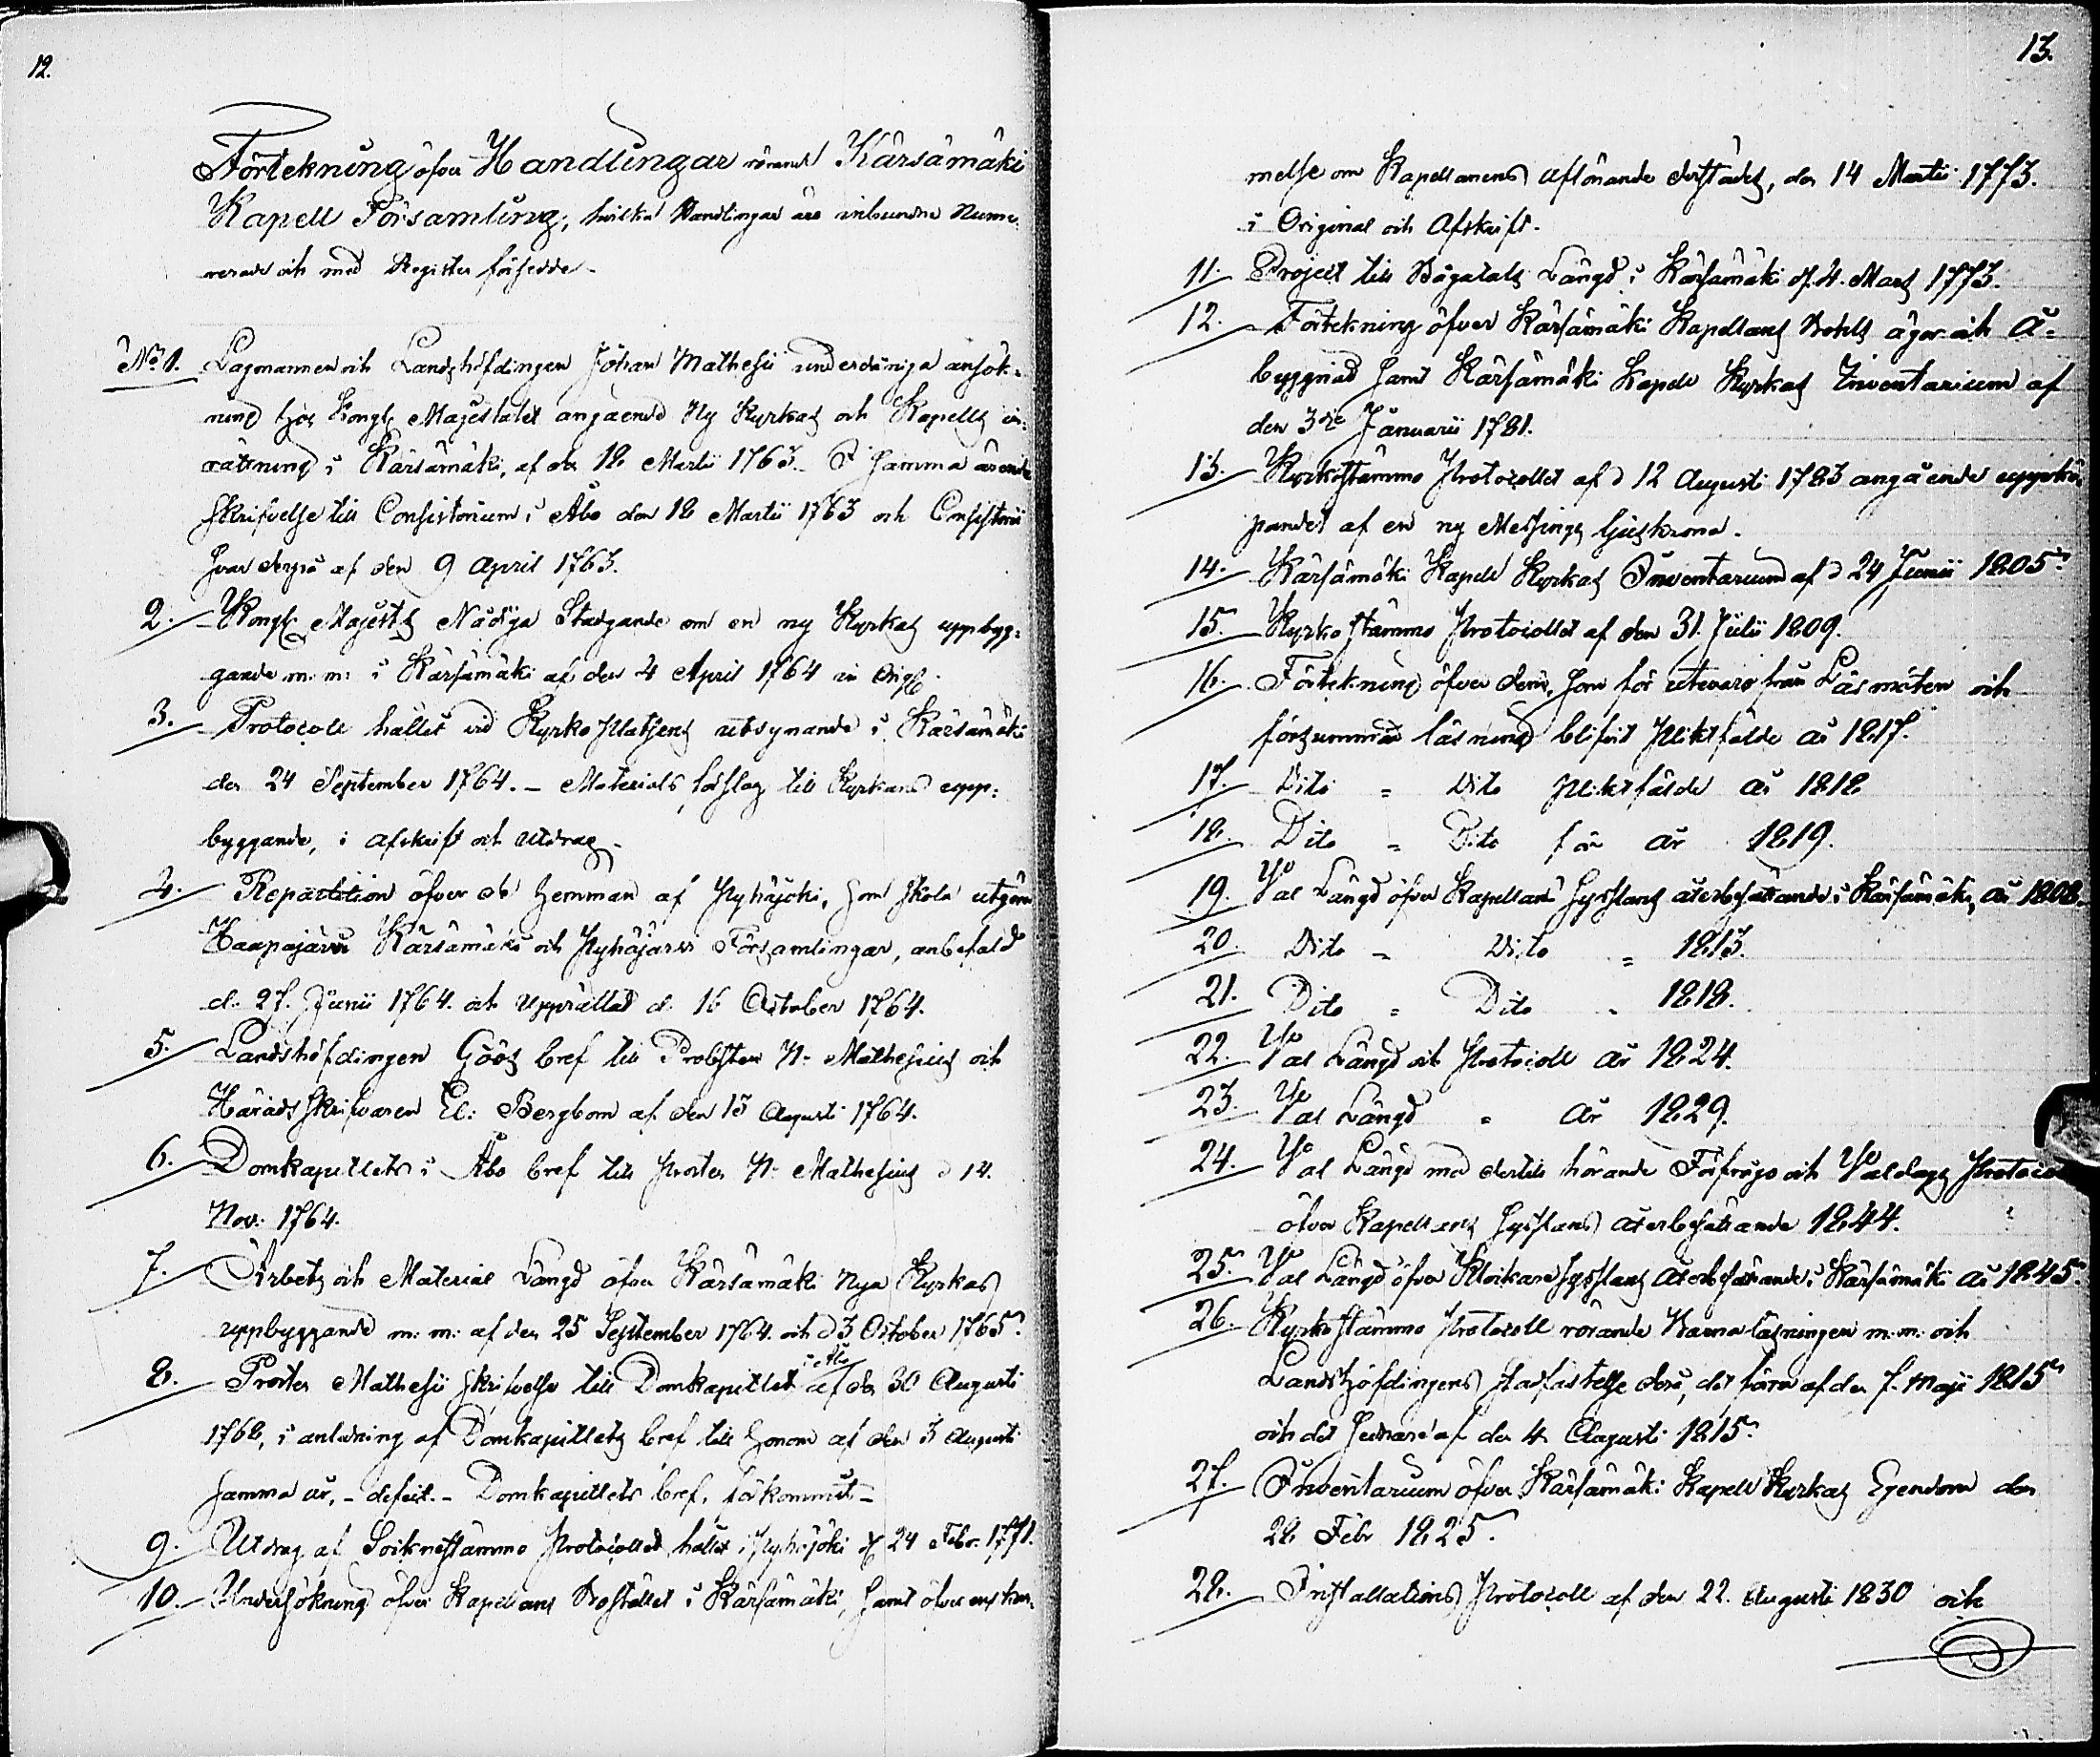 12.
Förtekning öfver Handlingar rörande Kärsämäki
Kapell Församling; hvilka Handlingar äro inbundne Nume-
rerade och med Register försedde.
No 1. Lagmannen och Landshöfdingen Johan Mathesii underdåniga ansök-
ning hos Kongl. Majestätet angående Ny Kyrkas och Kapells in-
rättning i Kärsämäki, af den 18 Martii 1763. I samma ärende
Skrifvelse till Consistorium i Åbo den 18 Martii 1763 och Consistorii
svar derpå af den 9 April 1763.
2. Kongl. Majestts Nådiga Stadgande om en ny Kyrkas uppbyg-
gande m. m: i Kärsämäki af den 4 April 1764 in Origl.
3. Protocoll hållit vid Kyrko Platsens utsynande i Kärsämäki
den 24 September 1764. – Materials förslag till Kyrkans upp-
byggande, i afskrift och utdrag.
4. Repartition öfver de hemman af Pyhäjoki, som skola utgöra
Haapajärvi Kärsämäki och Pyhäjärvi Församlingar, anbefald
d. 27. Junii 1764. och upprättad d. 16 October 1764.
5. Landshöfdingen Göös bref till Probsten N. Mathesius och
Häradsskrifvaren El: Bergbom af den 13 Augusti 1764.
6. Domkapitlets i Åbo bref till Prosten N. Mathesius d 14.
Nov: 1764.
7. Arbets och Material Längd öfver Kärsämäki Nya Kyrkas
uppbyggande m: m: af den 25 September 1764. och d 3 October 1765.
8. Prosten Mathesii Skrifvelse till Domkapitlet i Åbo af den 30 Augusti
1768, i anledning af Domkapitlets bref till honom af den 3 Augusti
samma år, – defect. – Domkapitlets bref, förkommit –
9. Utdrag af Sockenstämmo Protocollet, hållit i Pyhäjoki d 24 Febr: 1771.
10. Undersökning öfver Kapellans Bostället i Kärsämäki, samt öfverenskom-
13.
melse om Kapellanens aflönande derstädes, den 14 Martii 1773.
i Original och Afskrift.
11. Project till Rågatals Längd i Kärsämäki d. 4. Mars 1773.
12. Förtekning öfver Kärsämäki Kapellans Bohls ägor och Å-
byggnad samt Kärsämäki Kapell Kyrkas Inventarium af
den 3die Januarii 1781.
13. Kyrkostämmo Protocollet af d 12 Augusti 1783 angående uppkö-
pandet af en ny Messings ljuskrona.
14. Kärsämäki Kapell Kyrkas Inventarium af d 24 Junii 1805.
15. Kyrko stämmo Protocollet af den 31. Julii 1809.
16. Förtekning öfver dem, som för utevaro från Läsmöten och
försummad läsning blifvit pliktfälde år 1817.
17. Dito = Dito pliktfälde år 1818
18. Dito = Dito för år 1819.
19. Val Längd öfver Kapellans Sysslans återbesättande i Kärsämäki, år 1808.
20. Dito = Dito = 1813.
21. Dito = Dito = 1818.
22. Val Längd och Protocoll år 1824.
23. Val Längd = år 1829.
24. Val Längd med dertill hörande Förfrågo och Valdags Protocoll
öfver Kapellans Sysslans återbesättande 1844.
25. Val Längd öfver Klockare Sysslans återbesättande i Kärsämäki år 1845.
26. Kyrko stämmo Protocoll rörande Barnaläsningen m. m: och
Landshöfdingens stadfästelse derå, det förra af den 7. Maji 1815
och det sednare af den 4 Augusti 1815.
27. Inventarium öfver Kärsämäki Kapell Kyrkas Egendom den
28 Febr 1825.
28. Installations Protocoll af den 22. Augusti 1830 och